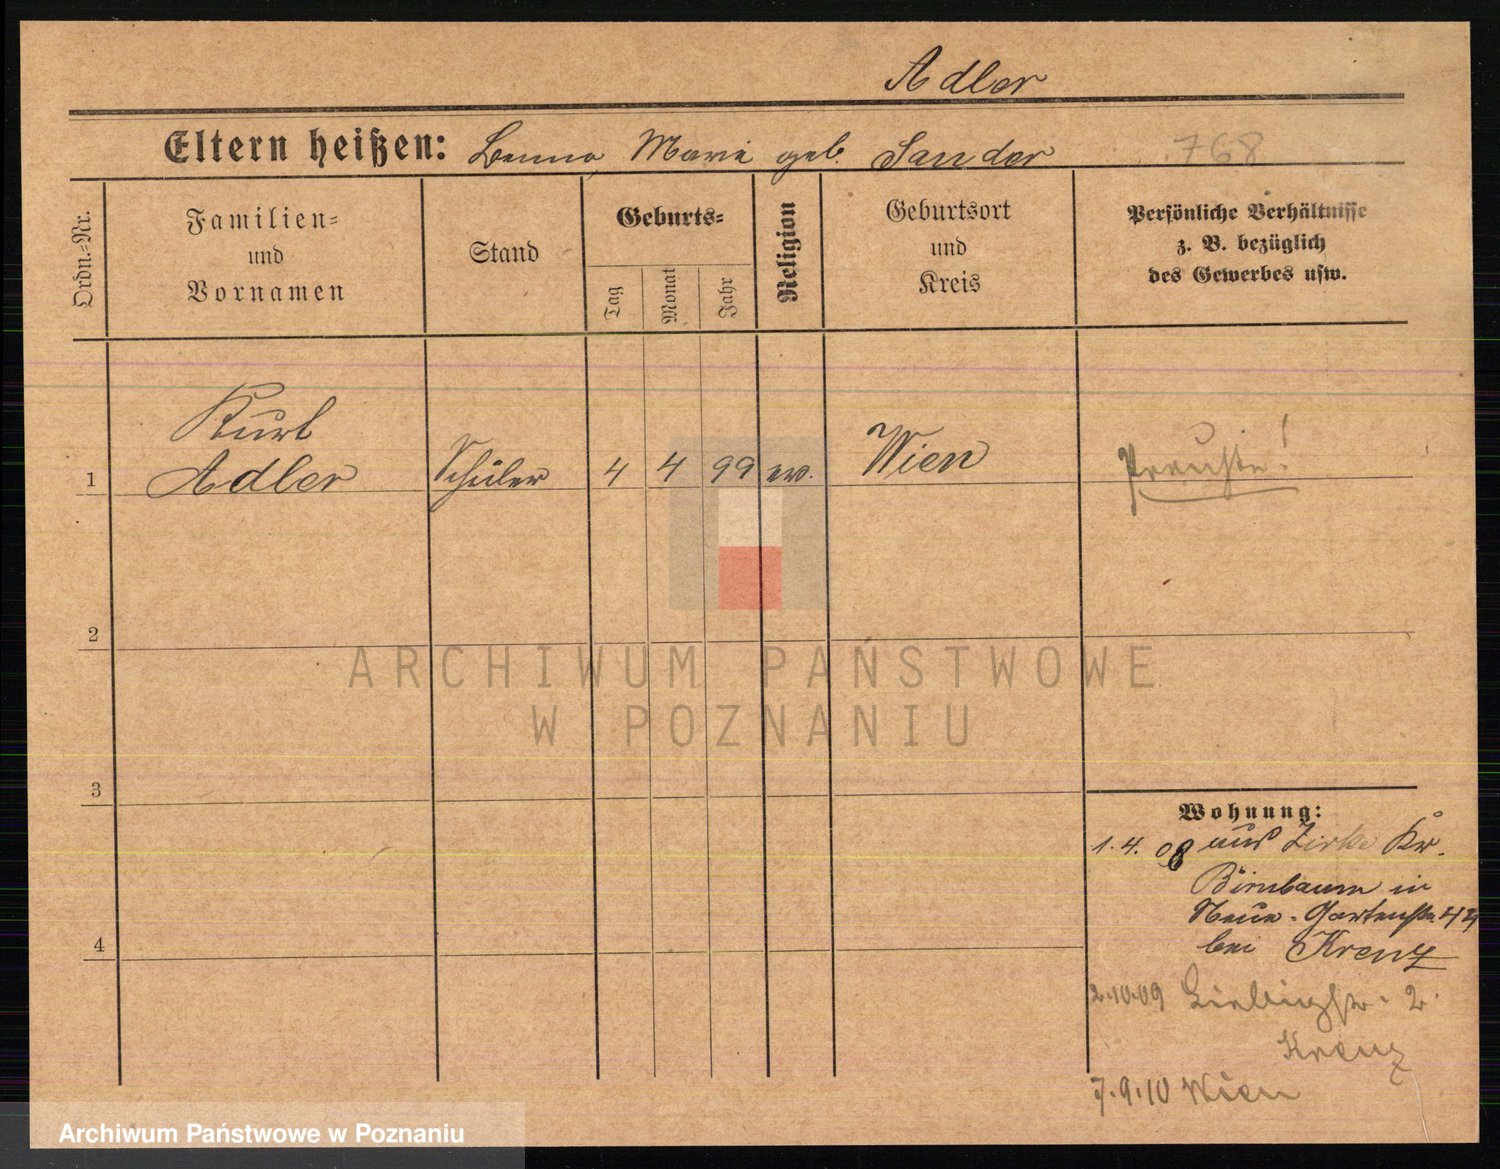 Adler
Eltern heißen: Benno, Marie geb. Sander 768
Ordn.-Nr.
Familien-
und
Vornamen
Stand
Geburts-
Tag
Monat
Jahr
Religion
Geburtsort
und
Kreis
Persönliche Verhältnisse
z. B. bezüglich
des Gewerbes usw.
Kurt
1 Adler Schüler 4 4 99 ev. Wien
2
3
4
Wohnung:
1. 4. 08 aus Zirke Kr.
Birnbaum in
Neue-Gartenstr. 44
bei Krenz
2.10.09 2.
Krenz
7.9.10 Wien
ARCHIWUM PAŃSTWOWE
W POZNANIU
Archiwum Państwowe w Poznaniu